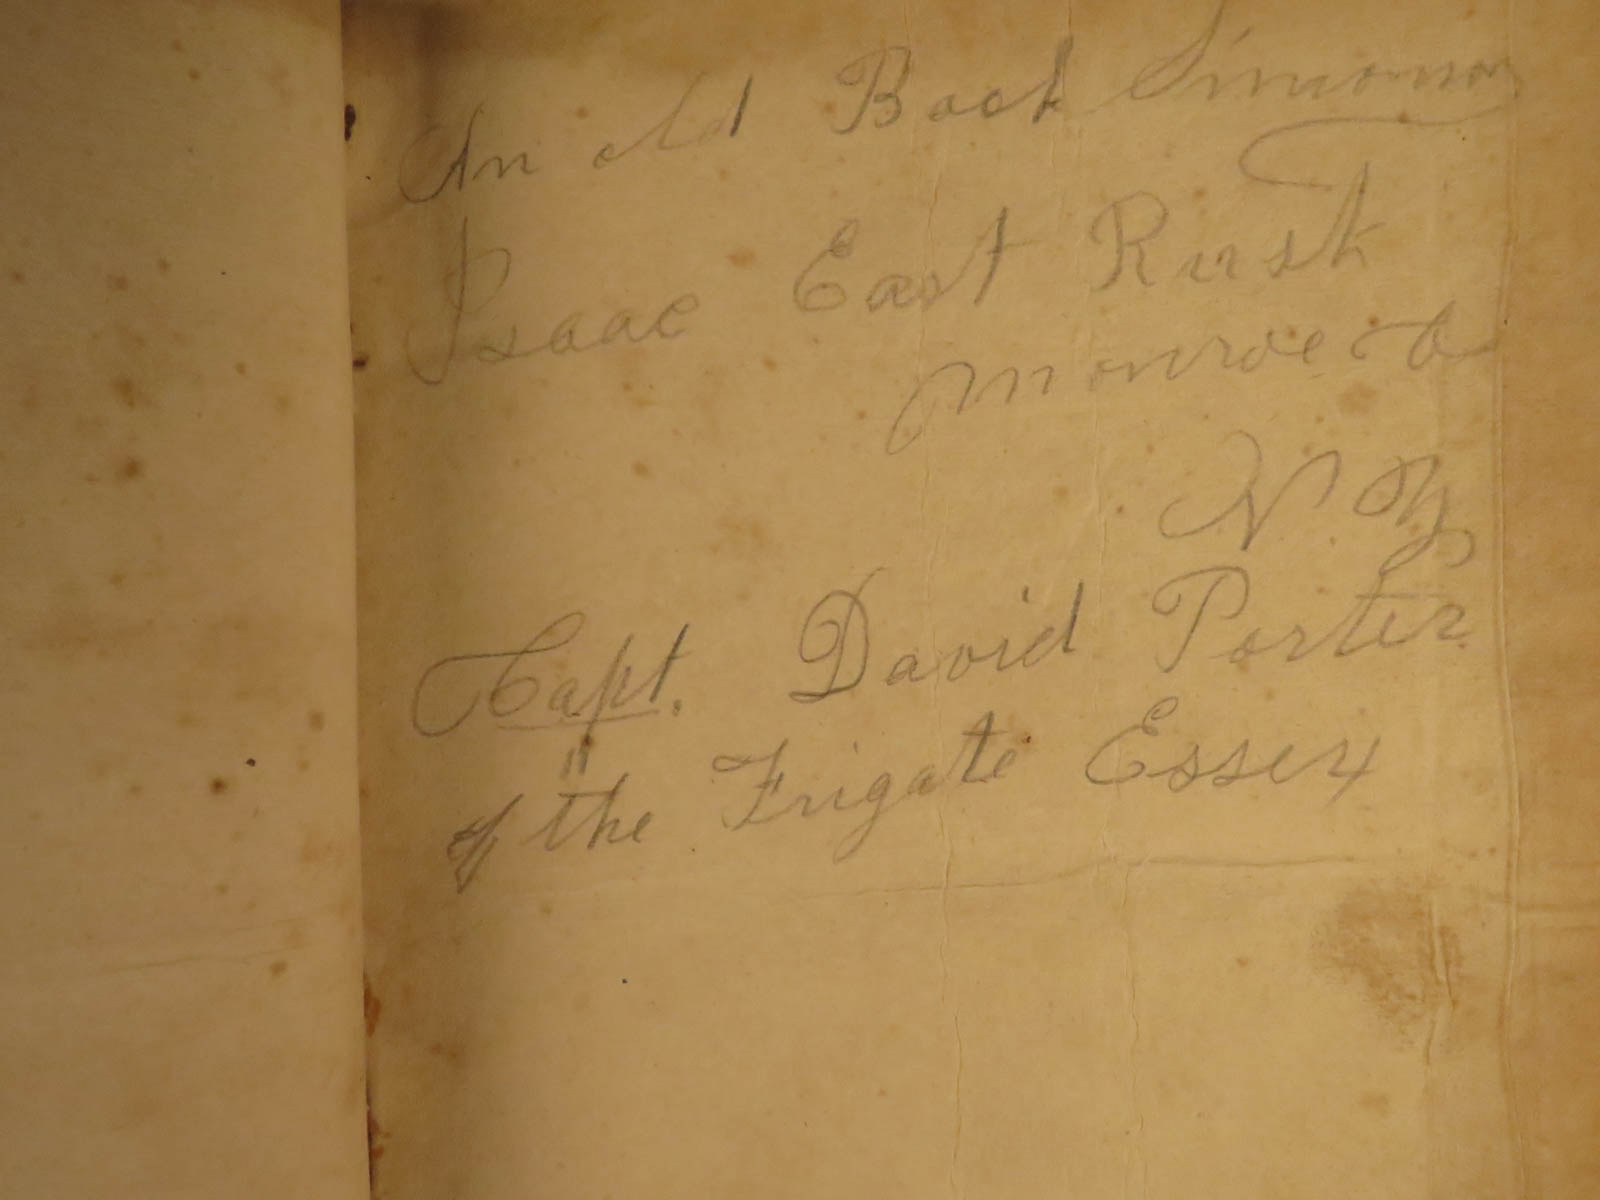 An old Book Simonson
Isaac East Rush
Monroe Co
N Y
Capt. David Porter
of the Frigate Essex